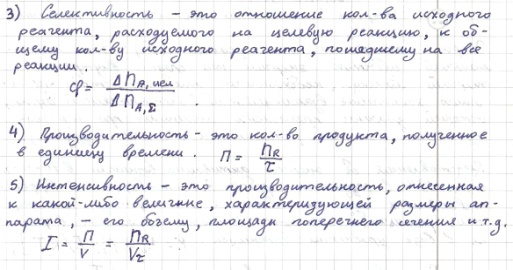 3) Селективность – это отношение кол-ва исходного
реагента, расходуемого на целевую реакцию, к об-
щему кол-ву исходного реагента, пошедшему на все
реакции.
φ = Δn_A,цел / Δn_A,Σ .
4) Производительность – это кол-во продукта, полученное
в единицу времени. П = n_R / τ
5) Интенсивность – это производительность, отнесенная
к какой-либо величине, характеризующей размеры ап-
парата, – его объему, площади поперечного сечения и т.д.
I = П / V = n_R / Vτ